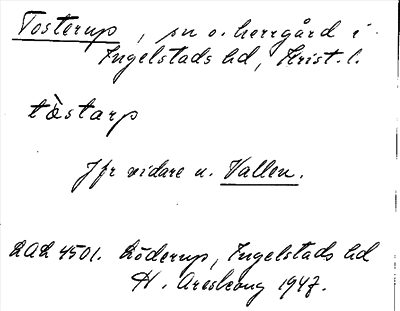 Tosterup, sn o. herrgård i
Ingelstads hd, Krist. l.
tòstarp
Jfr vidare u. Vallen.
LAL 4501. Löderup, Ingelstads hd
H. Areskoug 1947.